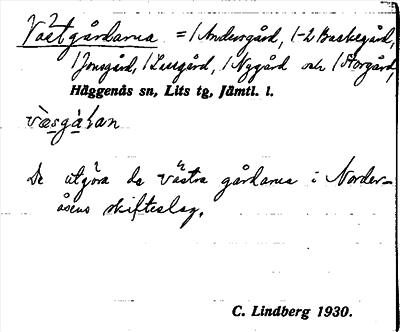 Västgårdarna = 1 Andersgård, 1-2 Backegård,
1 Jonsgård, 1 Largård, 1 Nygård och 1 Storgård,
Häggenås sn, Lits tg, Jämtl. l.
De utgöra de västra gårdarna i Norder-
åsens skifteslag.
C. Lindberg 1930.